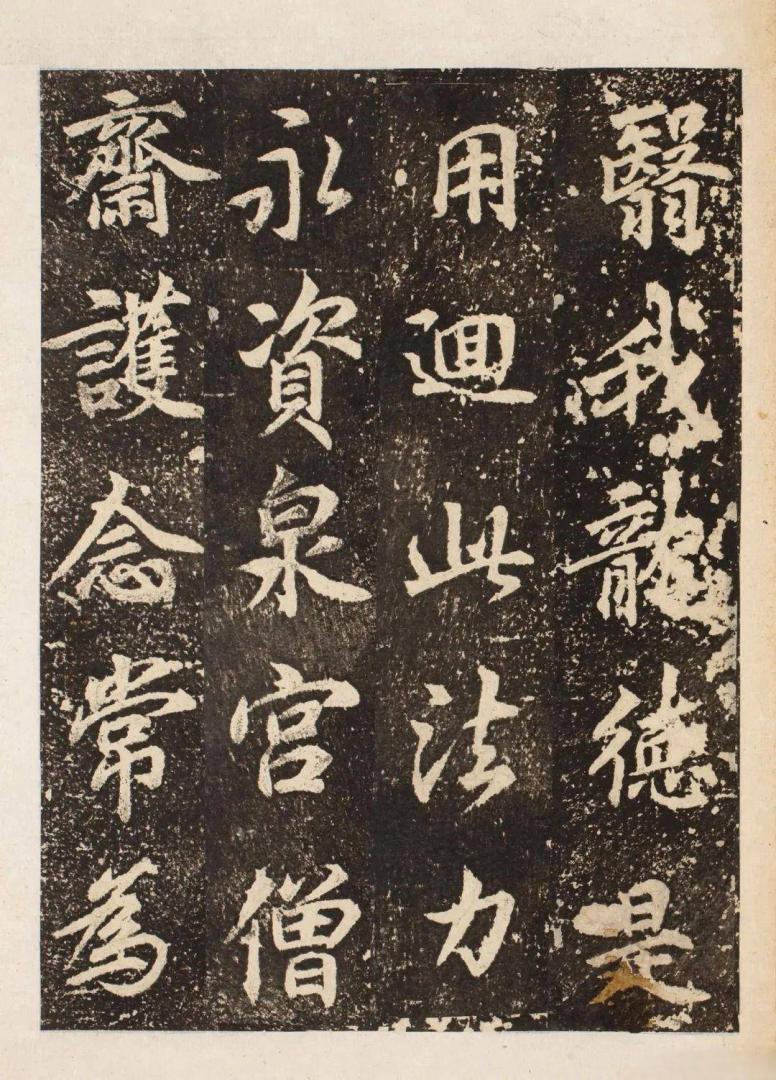 翳我龍德是
用迴此法力
永資泉宮僧
齋護念常為